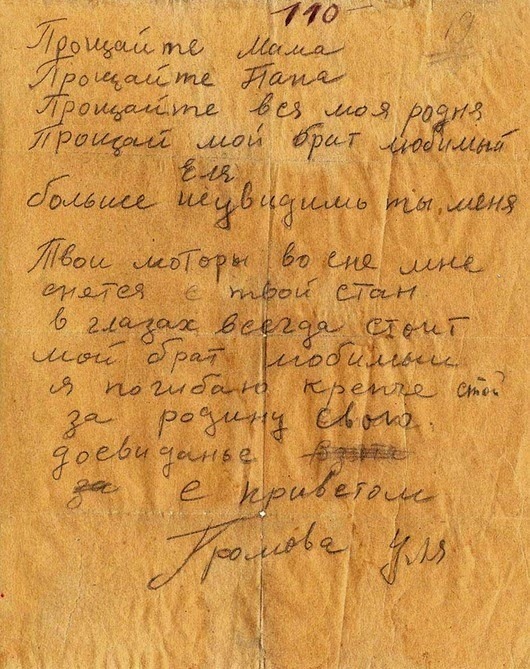 110
19
Прощайте Мама
Прощайте Папа
Прощайте вся моя родня
Прощай мой брат любимый
Еля
больше неувидишь ты меня
Твои моторы во сне мне
снется с твой стан
в глазах всегда стоит
мой брат любимый
я погибаю крепче стой
за родину свою
досвиданье
за
с приветом
Громова Уля